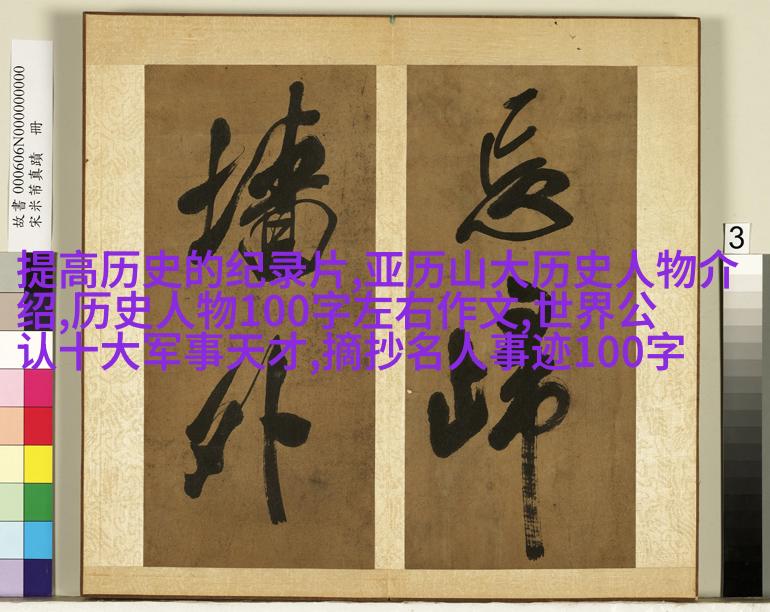 提高历史的纪录片,亚历山大历史人物介
绍,历史人物100字左右作文,世界公
认十大军事天才,摘抄名人事迹100字
忘歸
墙外
故書 000606N000000000
宋米芾真蹟 冊
3